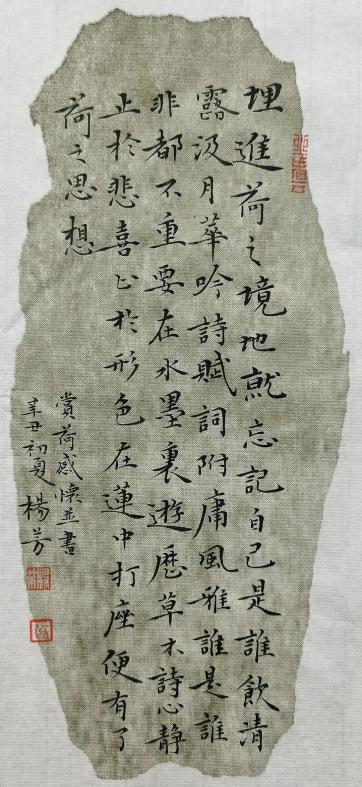 埋進荷之境地就忘記自己是誰飲清
露汲月華吟詩賦詞附庸風雅誰是誰
非都不重要在水墨裏遊歷草木詩心静
止於悲喜止於形色在蓮中打座便有了
荷之思想
賞荷感懷並書
辛丑初夏楊芳